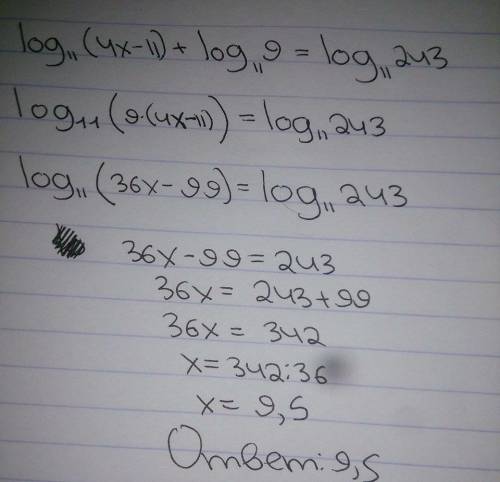 log₁₁(4x-11)+log₁₁9=log₁₁243
log₁₁(9·(4x-11))=log₁₁243
log₁₁(36x-99)=log₁₁243
36x-99=243
36x=243+99
36x=342
x=342:36
x=9,5
Ответ:9,5